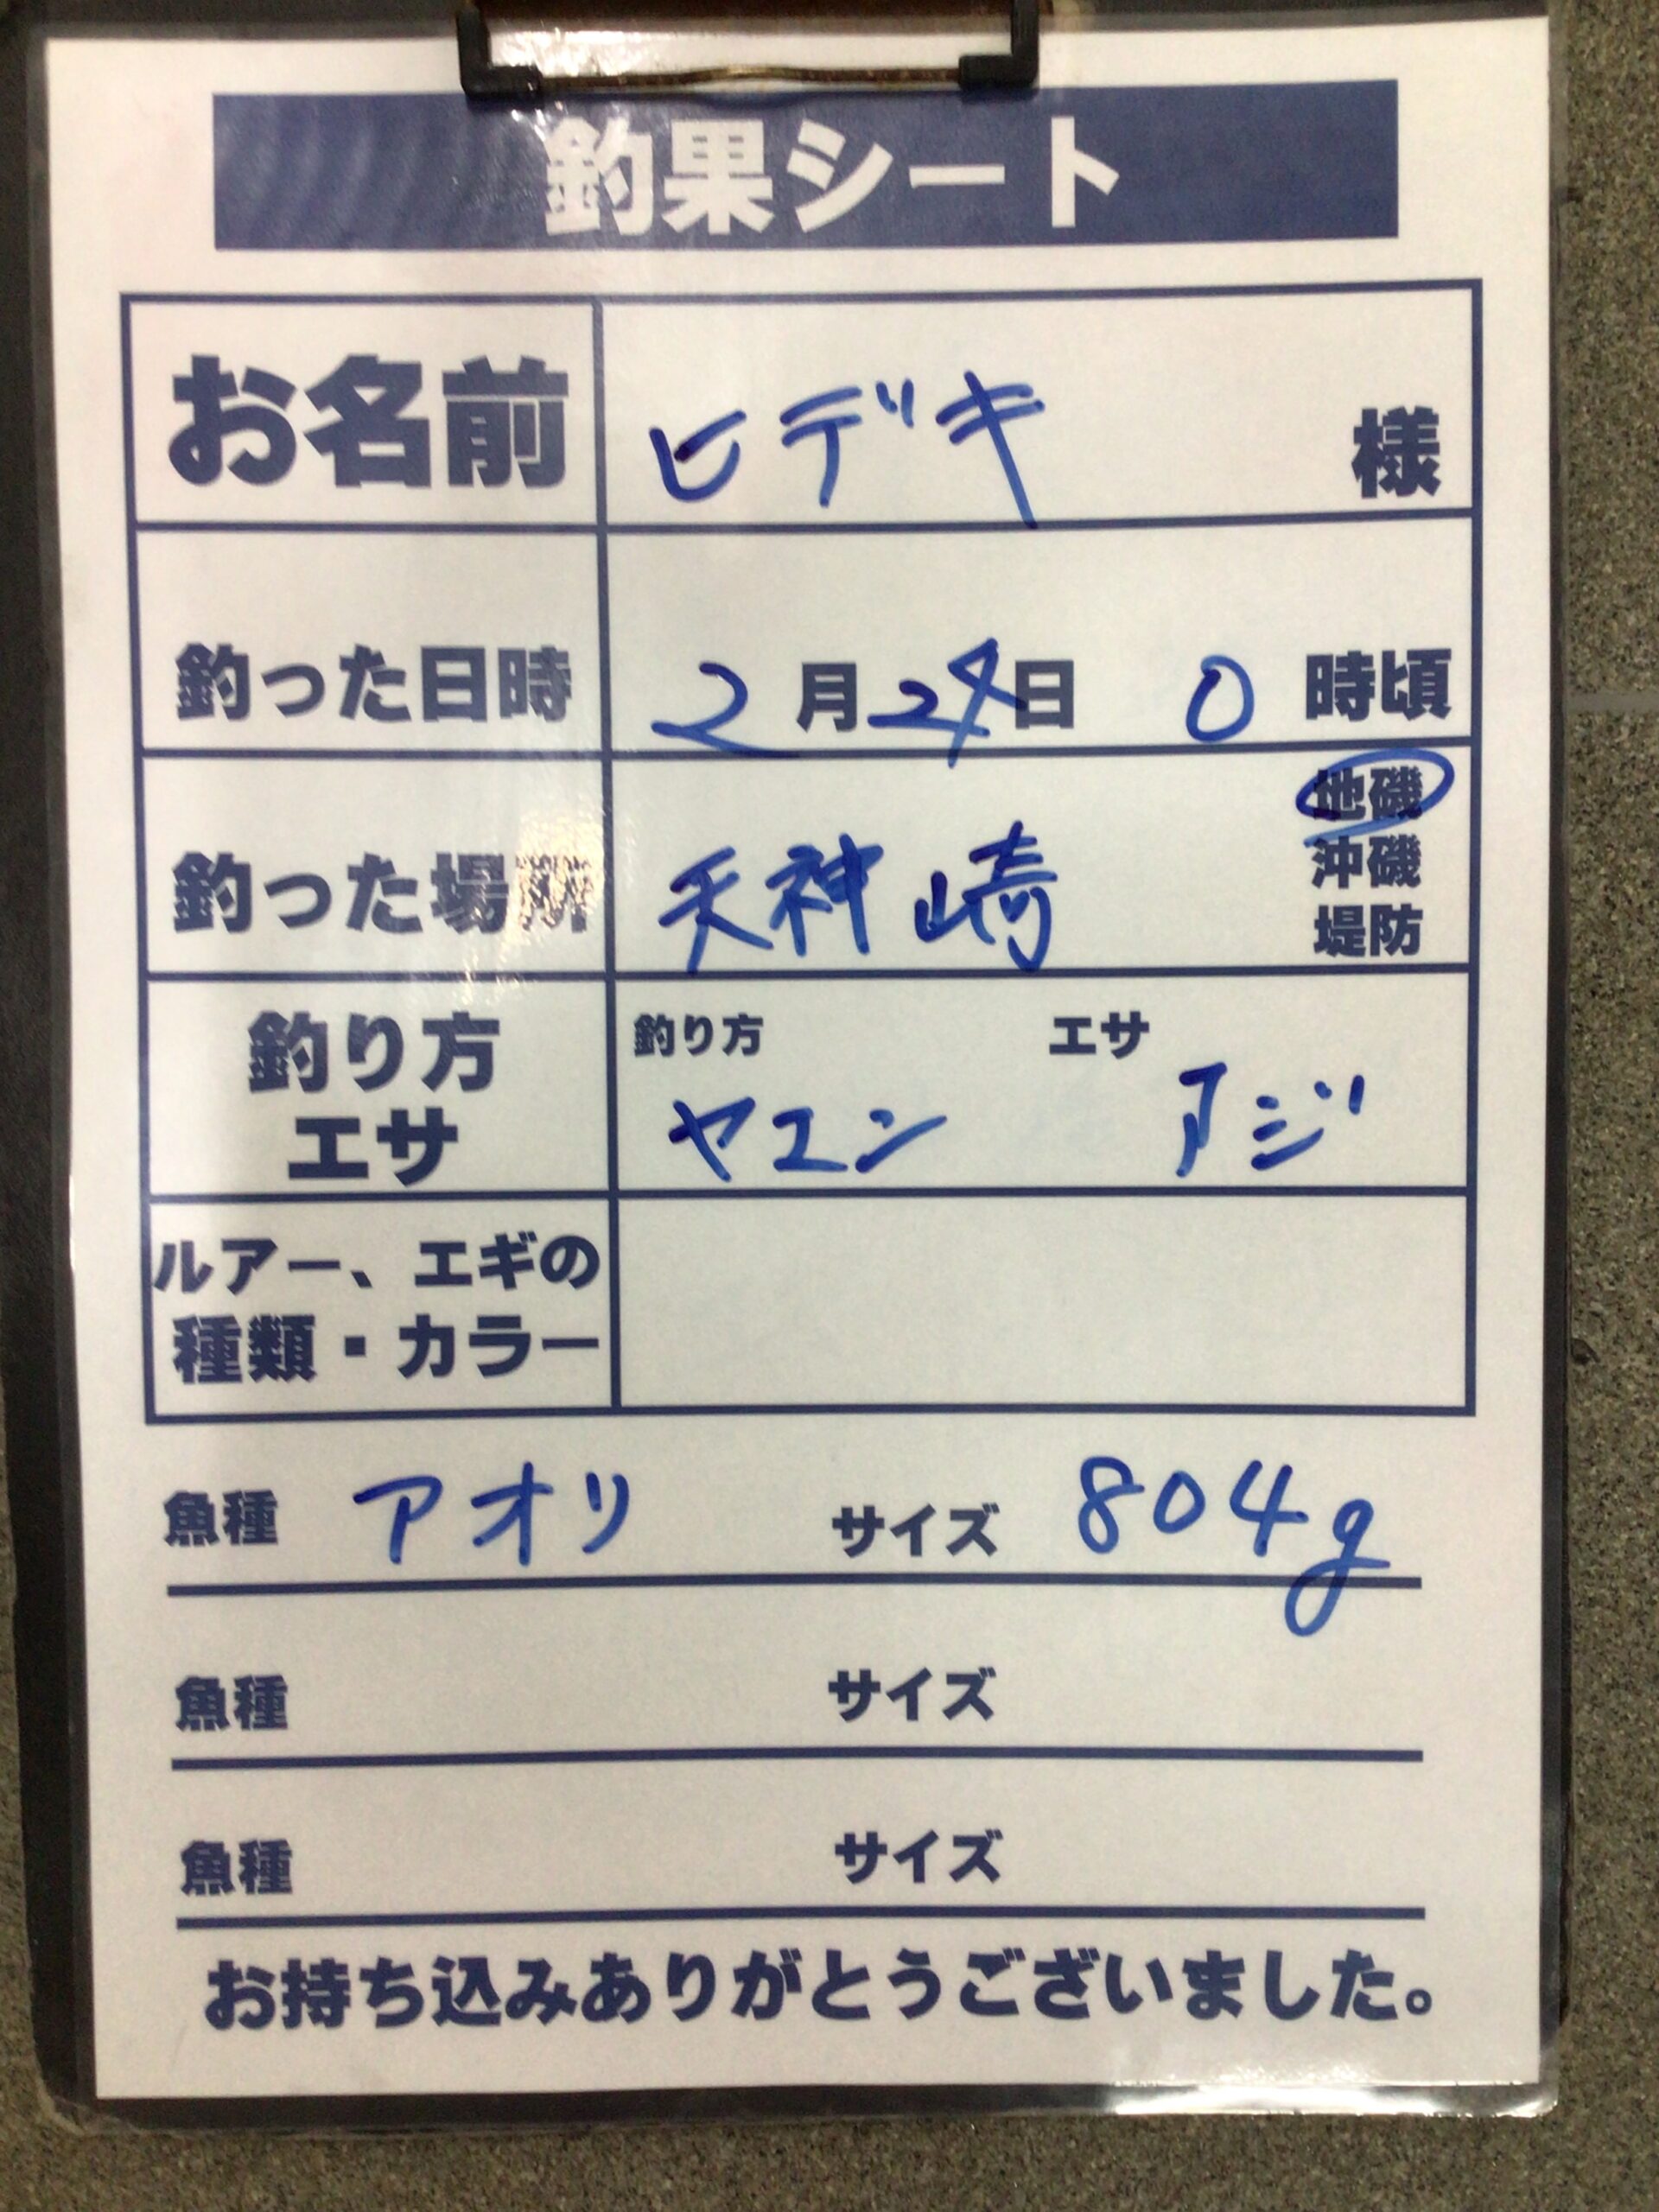 釣果シート
お名前 ヒデキ 様
釣った日時 2月24日 0時頃
釣った場所 天神崎 地磯
沖磯
堤防
釣り方 エサ
釣り方
エサ
ヤエン アジ
ルアー、エギの
種類・カラー
魚種 アオリ サイズ 804g
魚種 サイズ
魚種 サイズ
お持ち込みありがとうございました。